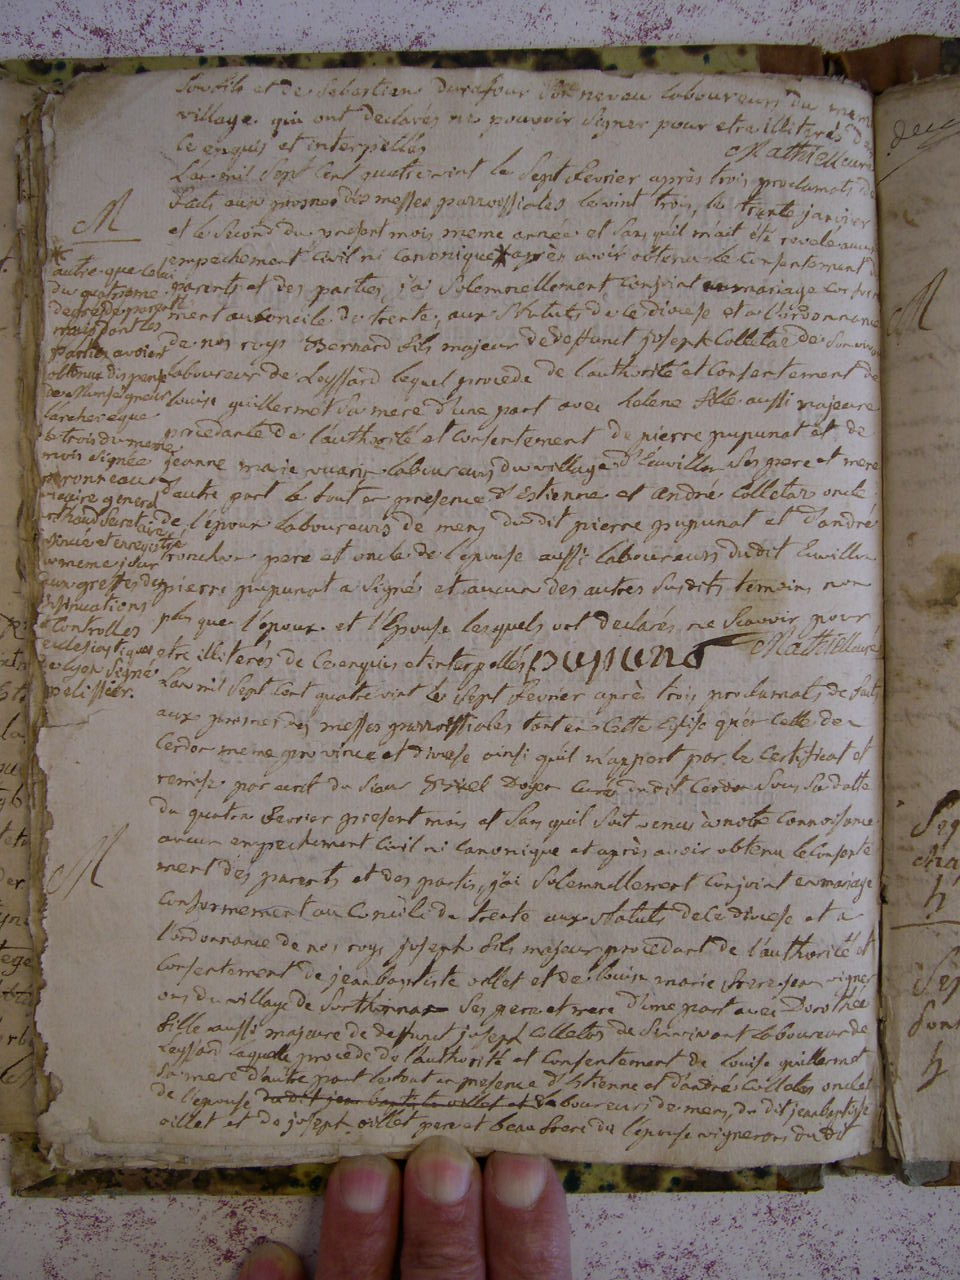 son fils et de Sebastien Dusafour son neveu laboureurs du meme
village qui ont declarés ne pouvoir signer pour etre illiterés de
ce enquis et interpellés Mathieu curé
L'an mil sept cent quatrevint le sept fevrier après trois proclamats de
faits aux prosnes des messes parroissiales le vint trois, le trente janvier
et le second du present mois meme année et sans qu'il m'ait été revelé aucun
M
empechement civil ni canonique * après avoir obtenu le consentement des
parents et des parties, j'ai solemnellement conjoint en mariage conforme
ment au concile de trente, aux statuts de ce diocese et a l'ordonnance
de nos roys Bernard fils majeur de deffunct joseph Colletaz de son vivant
laboureur de Leyssard lequel procede de l'authorité et consentement de
louise guillermet sa mere d'une part avec helene fille aussi majeure
procedante de l'authorité et consentement de pierre pupunat et de
jeanne marie laboureurs du village ses pere et mere
d'autre part le tout en presence d'Estienne et andré Colletaz oncles
de l'epoux laboureurs de mens du dit pierre pupunat et d'andré
pere et oncle de l'epouse aussi laboureurs dudit
pierre pupunat a signés et aucun des autres susdits temoins non
plus que l'epoux et l'Epouse lesquels ont declarés ne scavoir pour
etre illiterés de ce enquis et interpellés pupunat Mathieu curé
*
autre que celui
du quatrieme
degré de parenté
mais dont les
parties avoient
obtenu dispense
de Monseigneur
l'archeveque
le trois du meme
mois signée
vicaire general
secretaire
insinuée et enregistrée
le meme jour
aux greffes des
insinuations
et controlles
eclesiastiques
de lyon signé
pelissier.
L'an mil sept cent quatrevint le sept fevrier après trois proclamats de faits
aux prosnes des messes parroissiales tant en cette eglise qu'en celle de
Cerdon meme province et diocese ainsi qu'il m'appert par le certificat et
remise par ecrit du sieur Doyen curé dudit Cerdon sous sa datte
du quatre fevrier present mois et sans qu'il soit venus à notre connoissance
aucun empechement civil ni canonique et après avoir obtenu le consente
M
ment des parents et des parties, j'ai solemnellement conjoint en mariage
conformement au Concile de trente aux statuts de ce diocese et a
l'ordonnance de nos roys joseph fils majeur procedant de l'authorité et
consentement de jean baptiste oillet et de louise marie vigner
ons du village de ses pere et mere d'une part avec Dorothée
fille aussi majeure de deffunct joseph Colletaz de son vivant laboureur de
Leyssard laquelle procede de l'authorité et consentement de louise guillermet
sa mere d'autre part le tout en presence d'Estienne et d'andré Colletaz oncles
de l'epouse du dit jean baptiste oillet et de laboureurs de mens, du dit jean baptiste
oillet et de joseph oillet pere et beau frere de l'epouse vignerons du dit